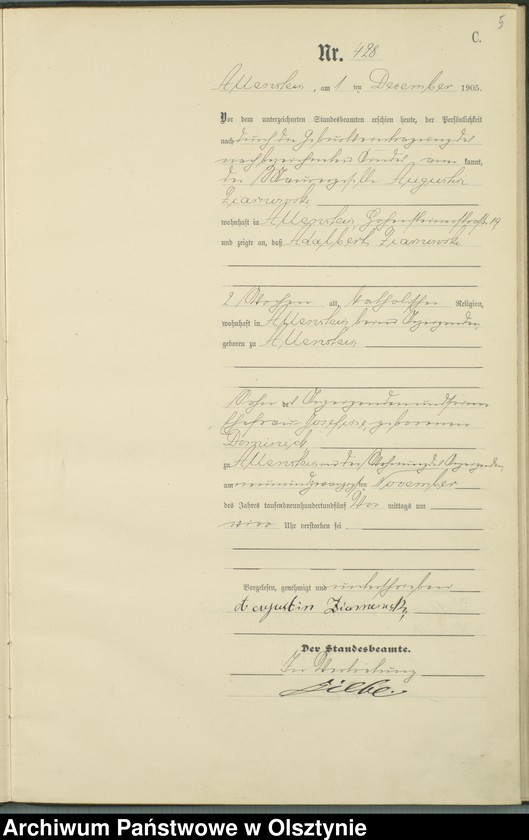 5
C.
Nr. 428
Allenstein, am 1 ten December 1905.
Vor dem unterzeichneten Standesbeamten erschien heute, der Persönlichkeit
nach durch die Geburtseintragung des
nachbezeichneten Kindes aner kannt,
der Maurergeselle
wohnhaft in Allenstein, Hohensteinerstraße 19
und zeigte an, daß Adalbert
2 Wochen alt, katholischer Religion,
wohnhaft in Allenstein beim Anzeigenden
geboren zu Allenstein
Sohn des Anzeigenden und seiner
Ehefrau geborenen
zu Allenstein in der Wohnung des Anzeigenden
am neunundzwanzigsten November
des Jahres tausendneunhundertundfünf Vor mittags um
vier Uhr verstorben sei
Vorgelesen, genehmigt und unterschrieben
Augustin
Der Standesbeamte.
In Vertretung
Archiwum Państwowe w Olsztynie